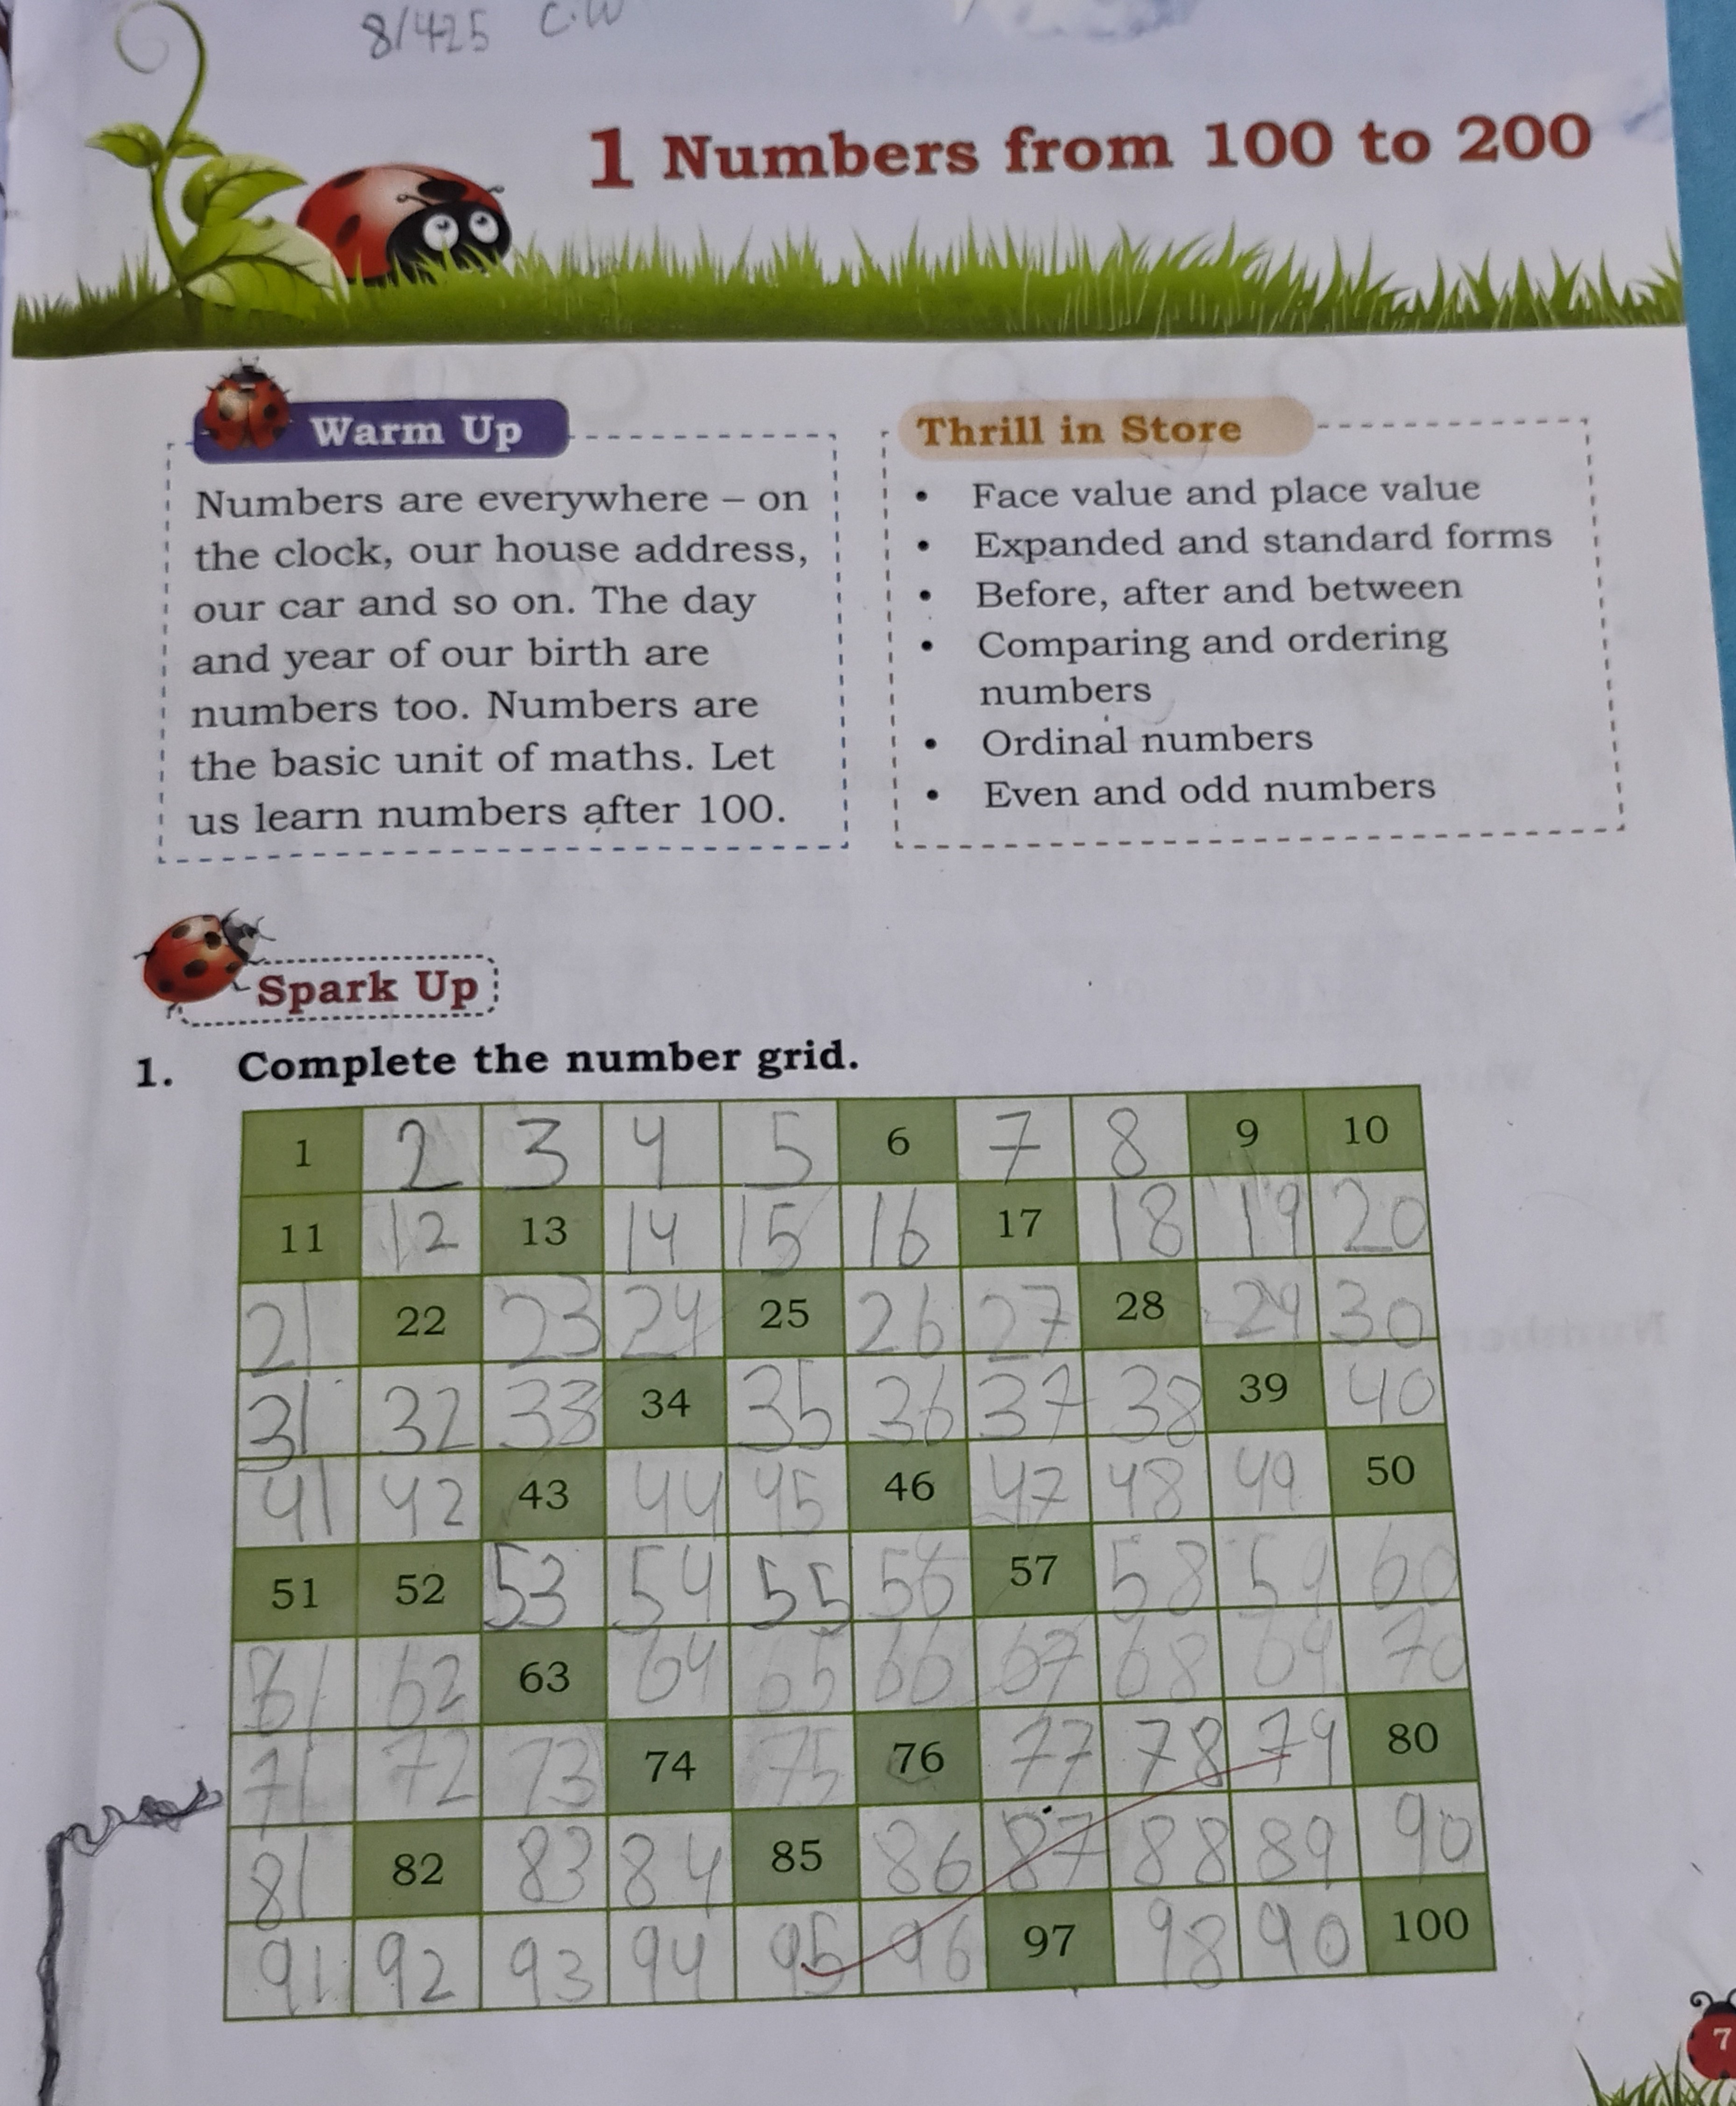 8/425 C.W
1 Numbers from 100 to 200
Warm Up
Numbers are everywhere – on
the clock, our house address,
our car and so on. The day
and year of our birth are
numbers too. Numbers are
the basic unit of maths. Let
us learn numbers after 100.
Thrill in Store
• Face value and place value
• Expanded and standard forms
• Before, after and between
• Comparing and ordering
numbers
• Ordinal numbers
• Even and odd numbers
Spark Up
1. Complete the number grid.
1 2 3 4 5 6 7 8 9 10
11 12 13 14 15 16 17 18 19 20
21 22 23 24 25 26 27 28 29 30
31 32 33 34 35 36 37 38 39 40
41 42 43 44 45 46 47 48 49 50
51 52 53 54 55 56 57 58 59 60
61 62 63 64 65 66 67 68 69 70
71 72 73 74 75 76 77 78 79 80
81 82 83 84 85 86 87 88 89 90
91 92 93 94 95 96 97 98 90 100
7